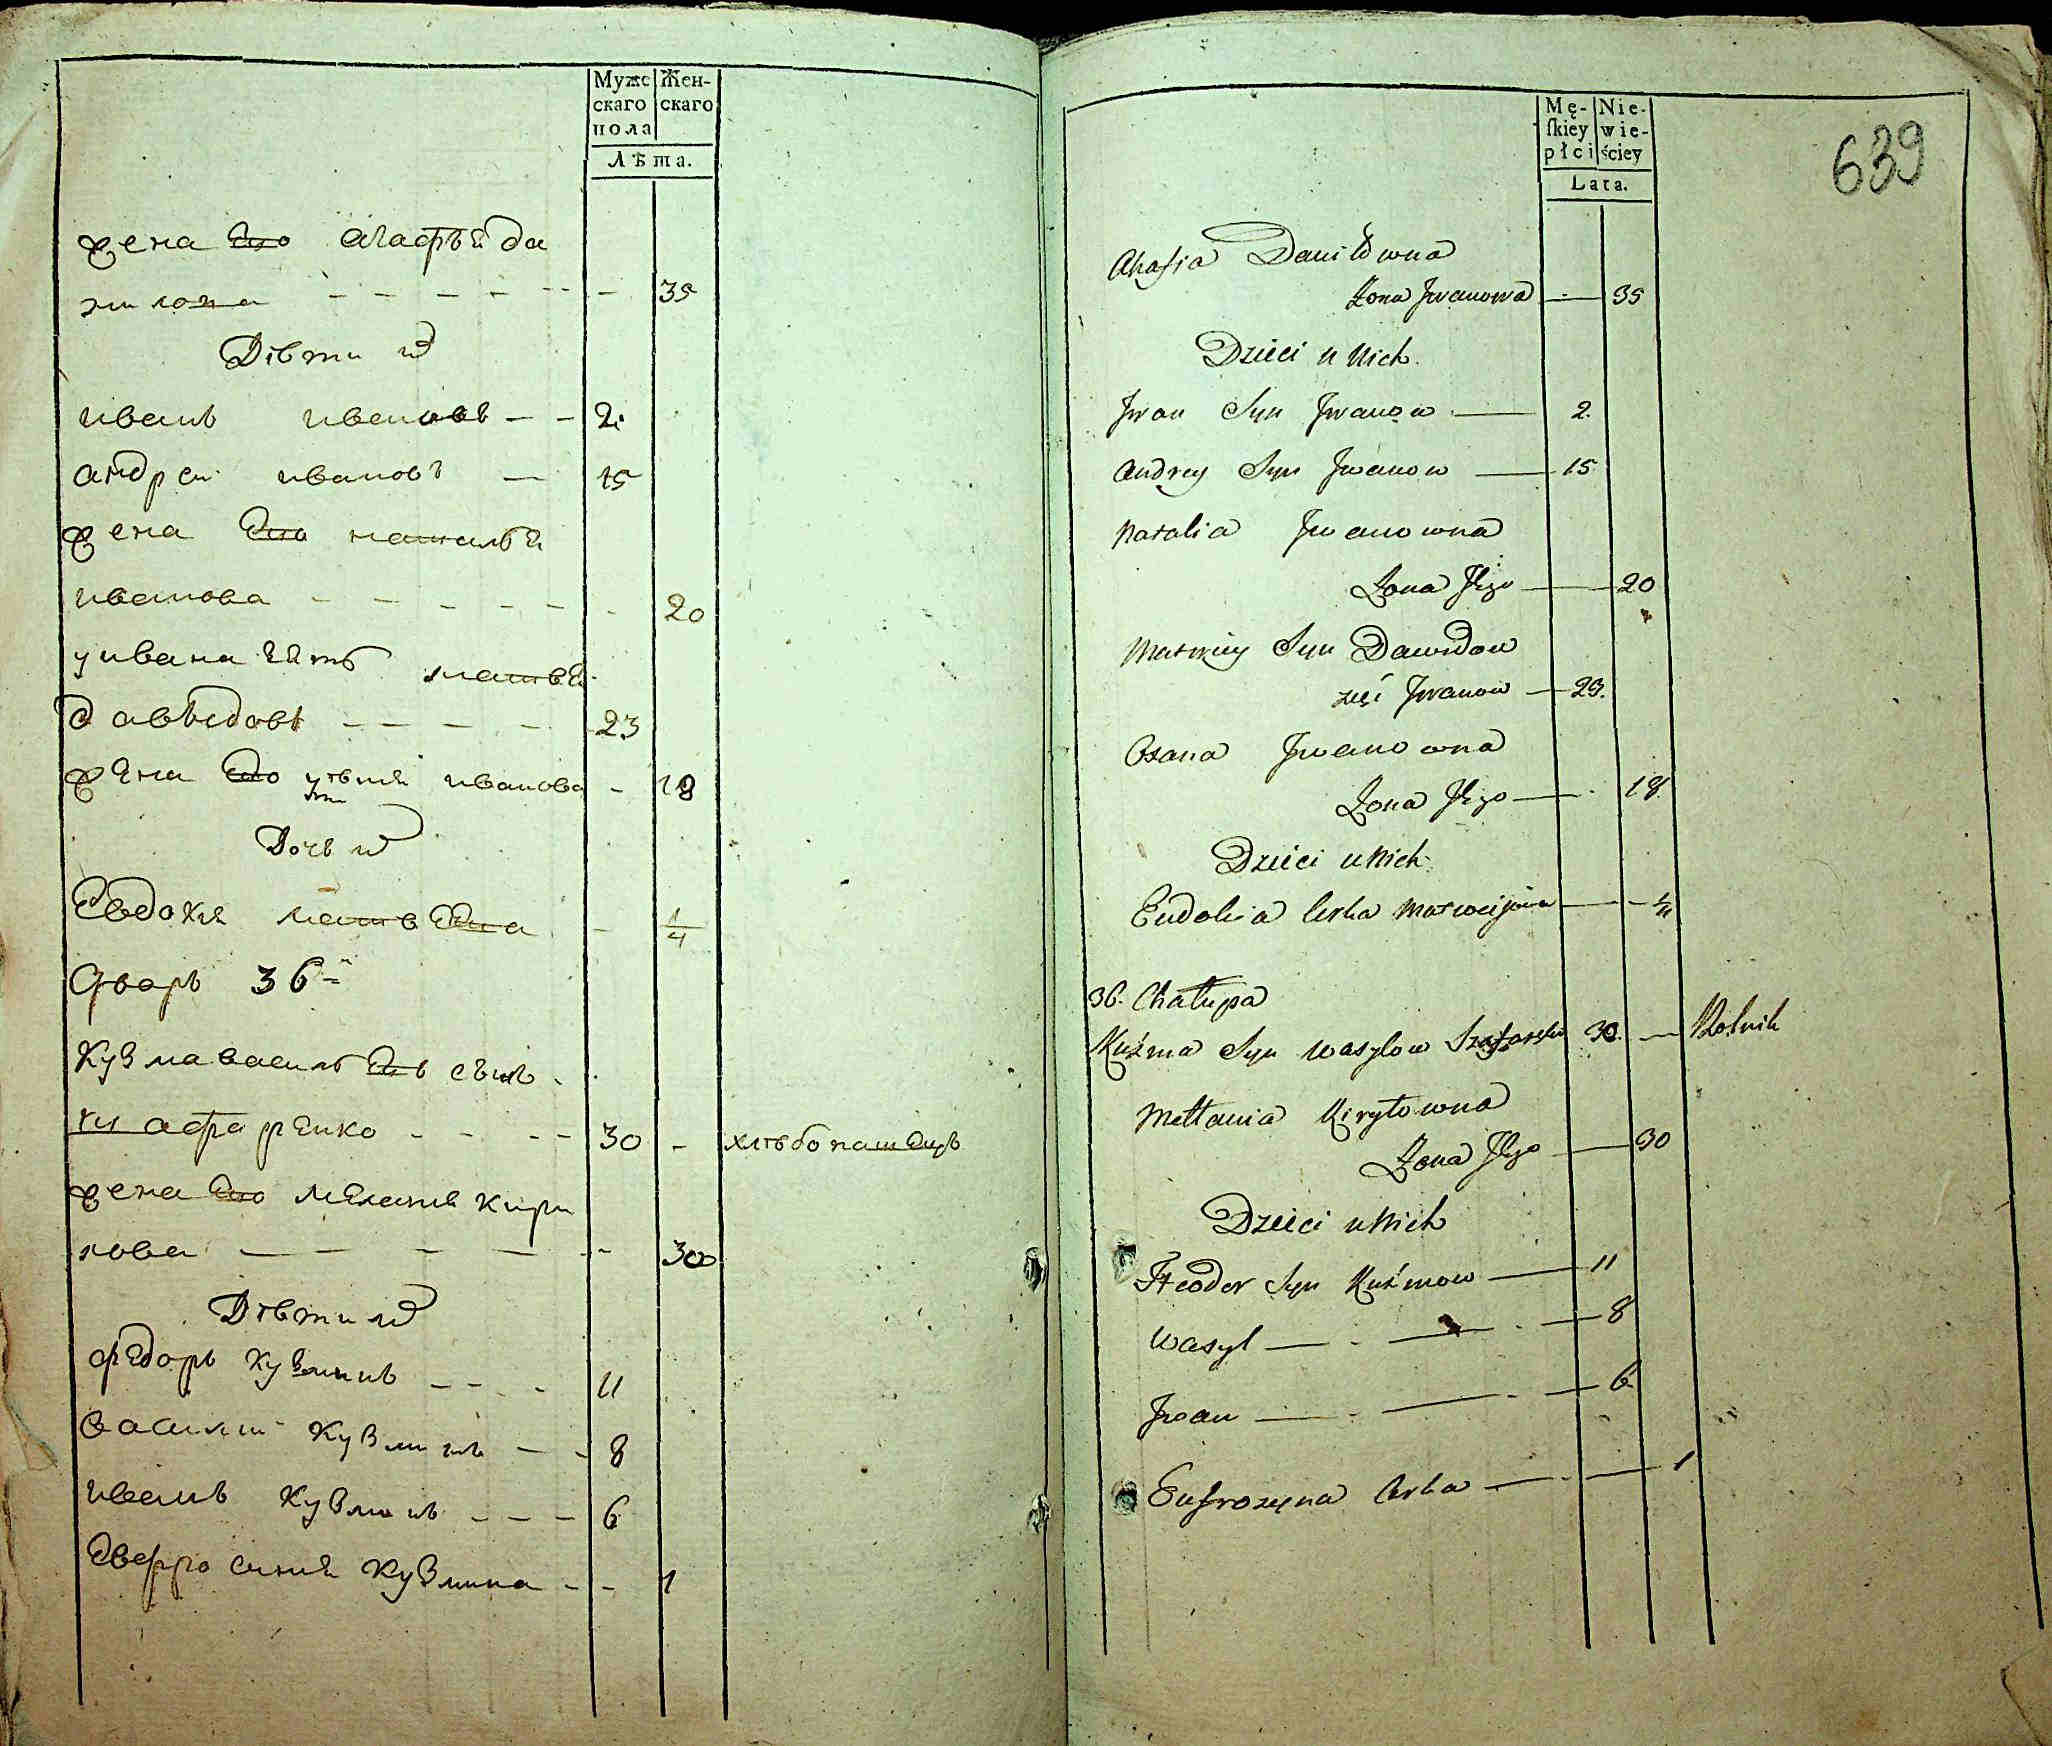 Муже
скаго
пола
Жен-
скаго
Лѣта.
жена его агафья да
нилова - - - - - - 35
Дѣти их
иванъ ивановъ - - 2.
андрей ивановъ - 15
жена его наталья
иванова - - - - - - 20
у ивана зять матвей
давыдовъ - - - - 23
жена его иванова - 18
Дочь их
Евдокия матвеева - 1/4
Дворъ 36-й
Кузма васильевъ сынъ
- - - - 30 - хлѣбопашецъ
жена его мелания кири
лова - - - - - 30
Дѣти их
федоръ Кузминъ - - - 11
василий Кузминъ - - 8
иванъ Кузминъ - - - 6
Евфросиния Кузмина - - 1
Mę-
ſkiey
płci
Nie-
wie-
ściey
Lata.
639
Ahafia Daniłowna
Żona Jwanowa — 35
Dzieci u Nich.
Jwan Syn Jwanow — 2.
Andrey Syn Jwanow — 15
Natalia Jwanowna
Żona Jego — 20
Matwiey Syn Dawidow
zięć Jwanow — 23.
Oxana Jwanowna
Żona Jego — 18
Dzieci u Nich.
Eudokia Corka Matweijowa — 1/4
36. Chałupa
Kuźma Syn Wasylow 30. — Rolnik
Mełania Kiryłowna
Żona Jego — 30
Dzieci u Nich
Fteodor Syn Kuźmow — 11
Wasyl — - — - — 8
Jwan — - — - — 6
Eufrozyna Corka — - — 1